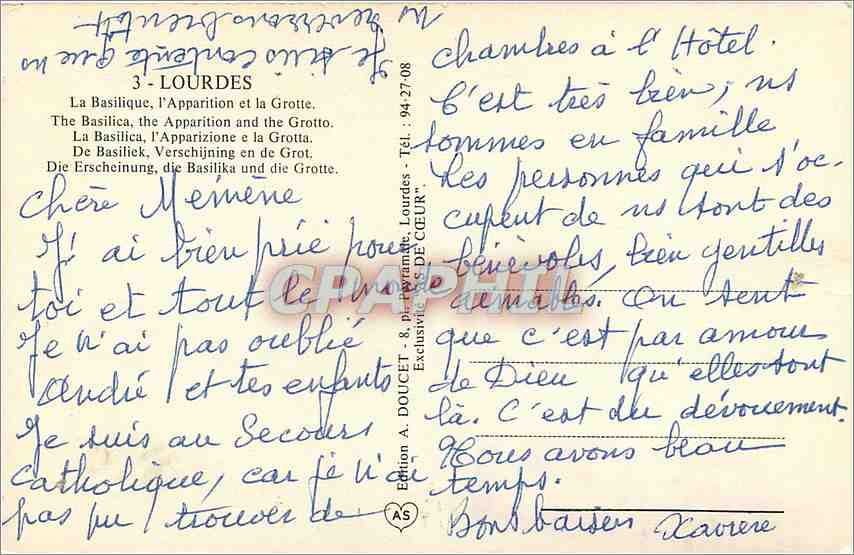 3 - LOURDES
La Basilique, l'Apparition et la Grotte.
The Basilica, the Apparition and the Grotto.
La Basilica, l'Apparizione e la Grotta.
De Basiliek, Verschijning en de Grot.
Die Erscheinung, die Basilika und die Grotte.
Chère Mémène
J'ai bien prié pour
toi et tout le monde
Je n'ai pas oublié
André et tes enfants
Je suis au Secours
Catholique, car je n'ai
pas pu trouver de
Edition A. DOUCET - 8, pl. Peyramale, Lourdes - Tél. : 94-27-08
Exclusivité "AS DE CŒUR".
AS
chambres à l'Hôtel.
C'est très bien, ns
sommes en famille
Les personnes qui s'oc-
cupent de ns sont des
bénévoles, bien gentilles
aimables. On sent
que c'est par amour
de Dieu qu'elles sont
là. C'est du dévouement.
Nous avons beau
temps.
Bons baisers Xavière
Je suis contente que ns
ns reverrons bientôt
CPAPHIL